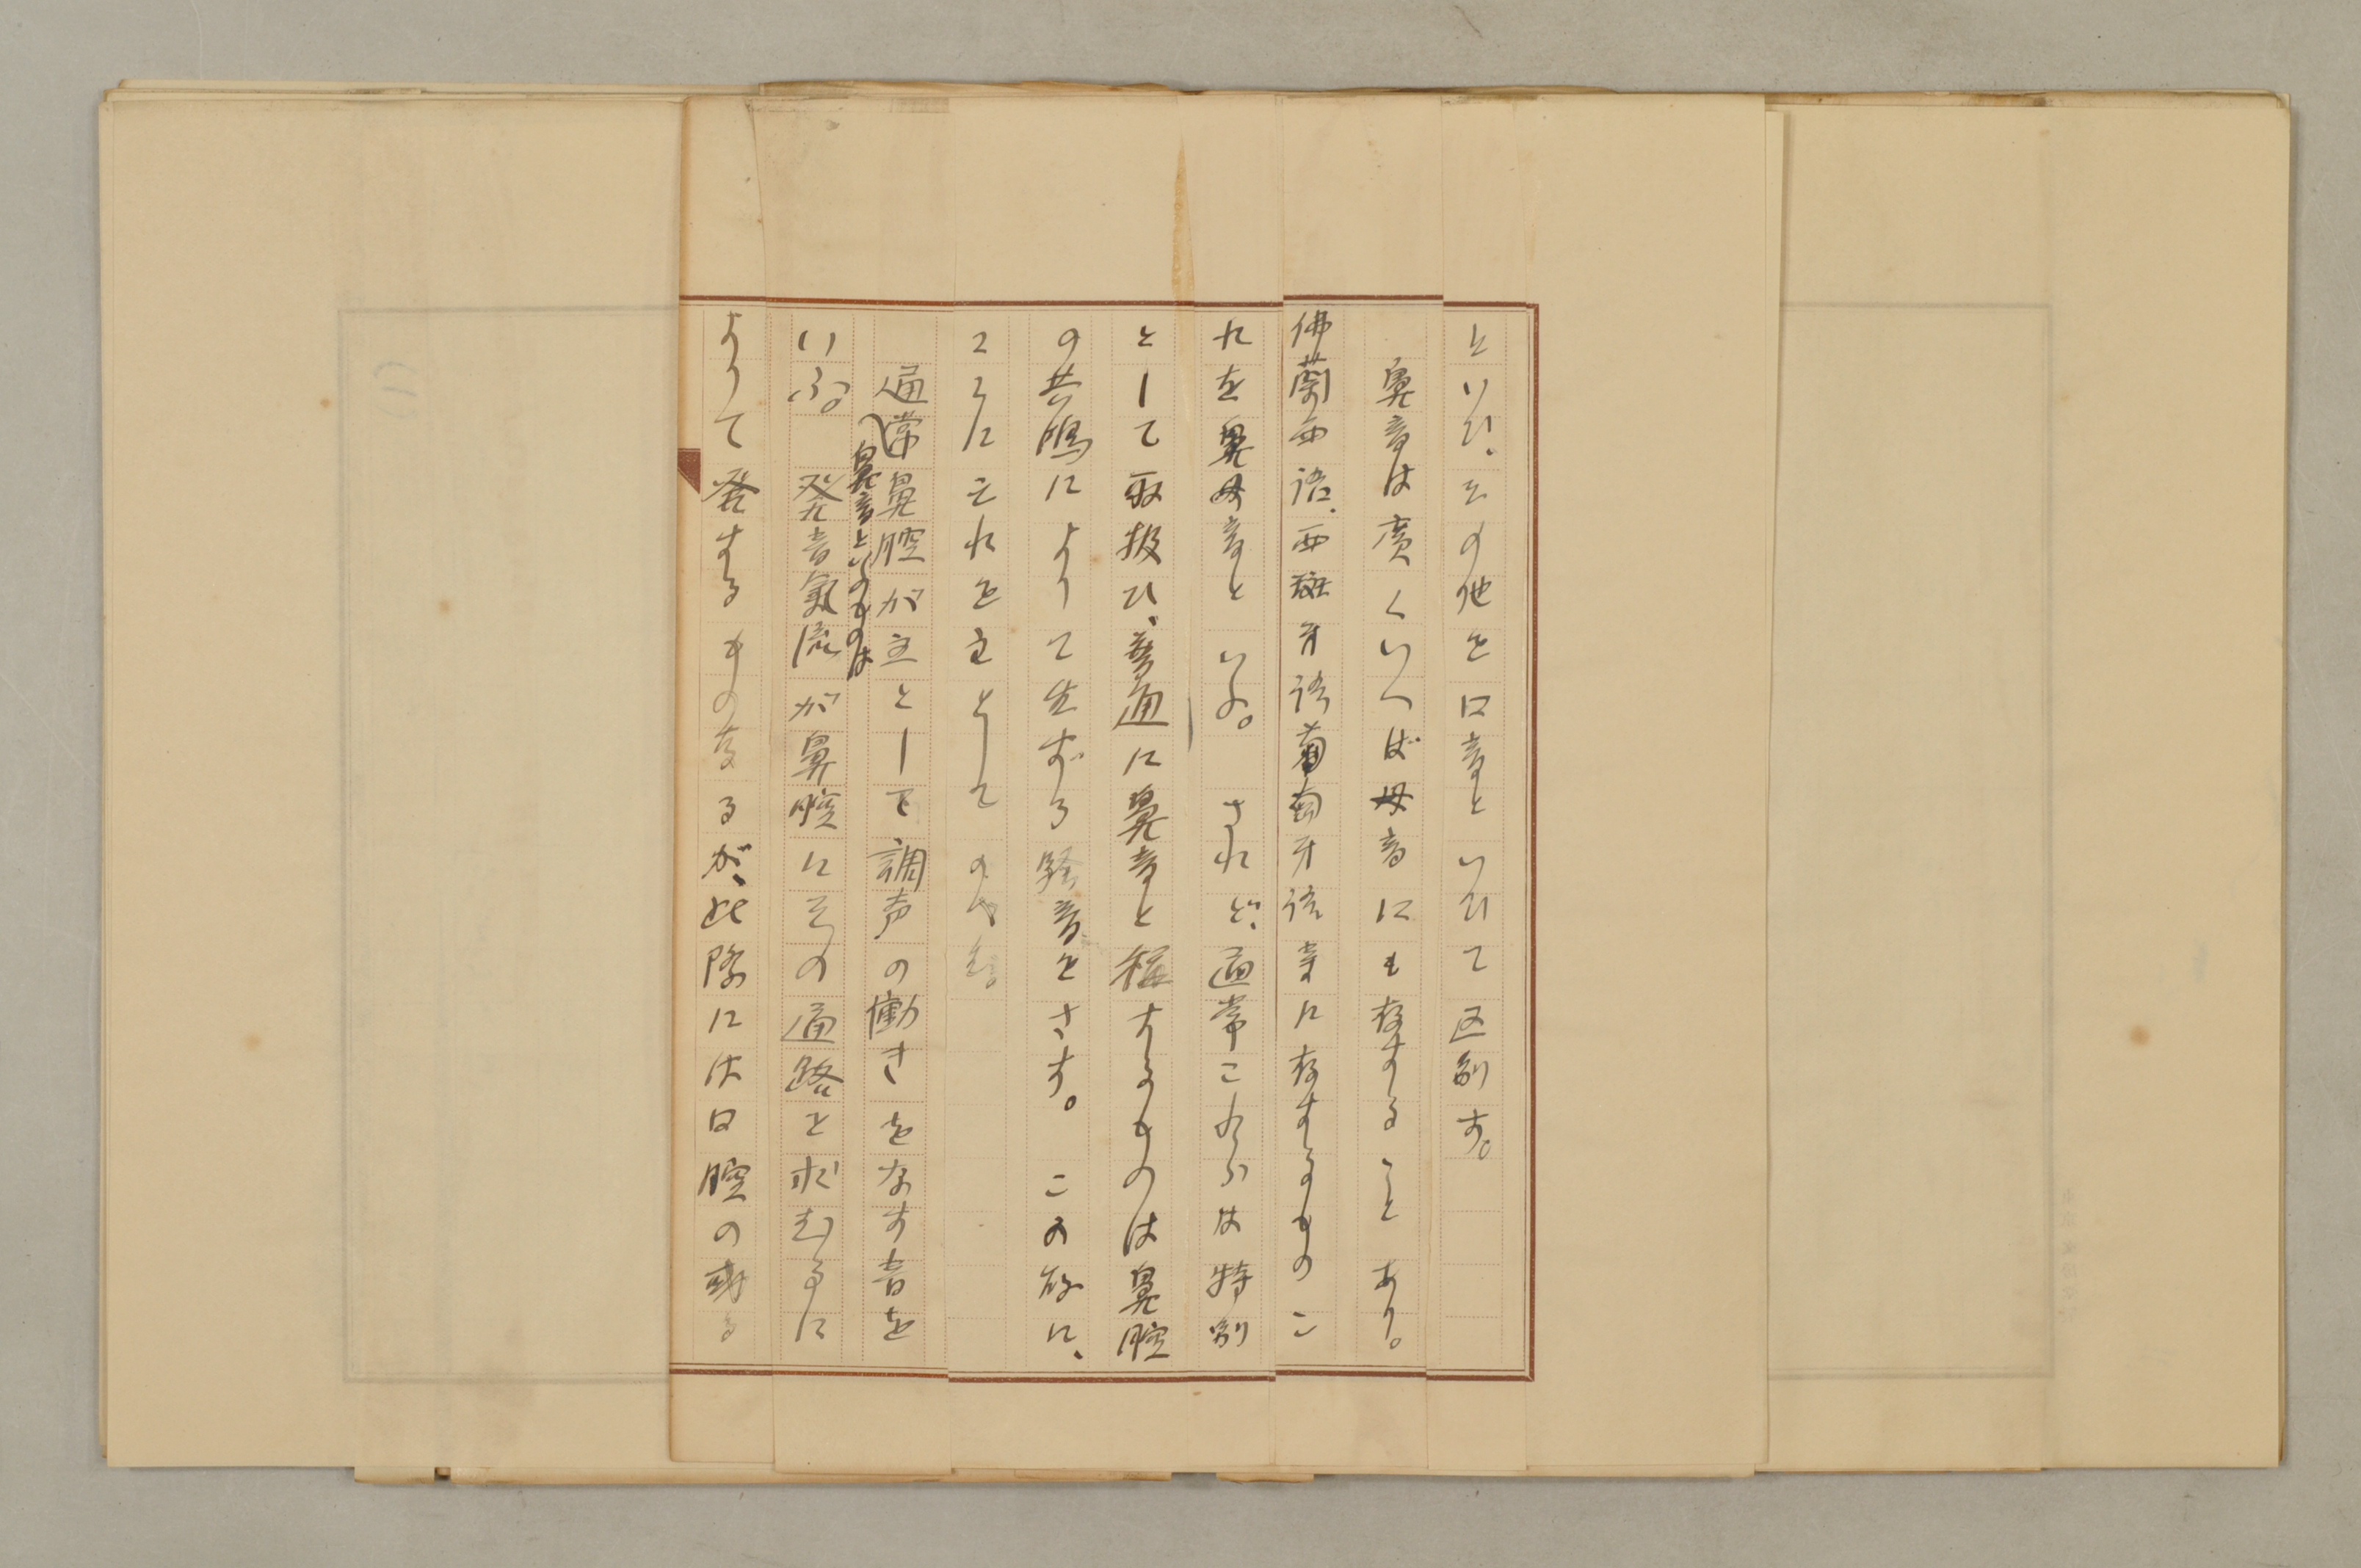 といひ、その他を口音といひて区別す。
鼻音は廣くいへば母音にも存することあり。
佛蘭西語、西班牙語葡萄牙語等に存するものこ
れを鼻母音といふ。されど、通常これらは特別
として取扱ひ、普通に鼻音と稱するものは鼻腔
の共鳴によりて生ずる騒音をさす。この故に、
こゝにそれを主として
通常鼻腔が主として調声の働きをなす音を
鼻音といふのものは
いふ。発音氣流が鼻腔にその通路を求むるに
よりて発するものなるが、此際には口腔の或る